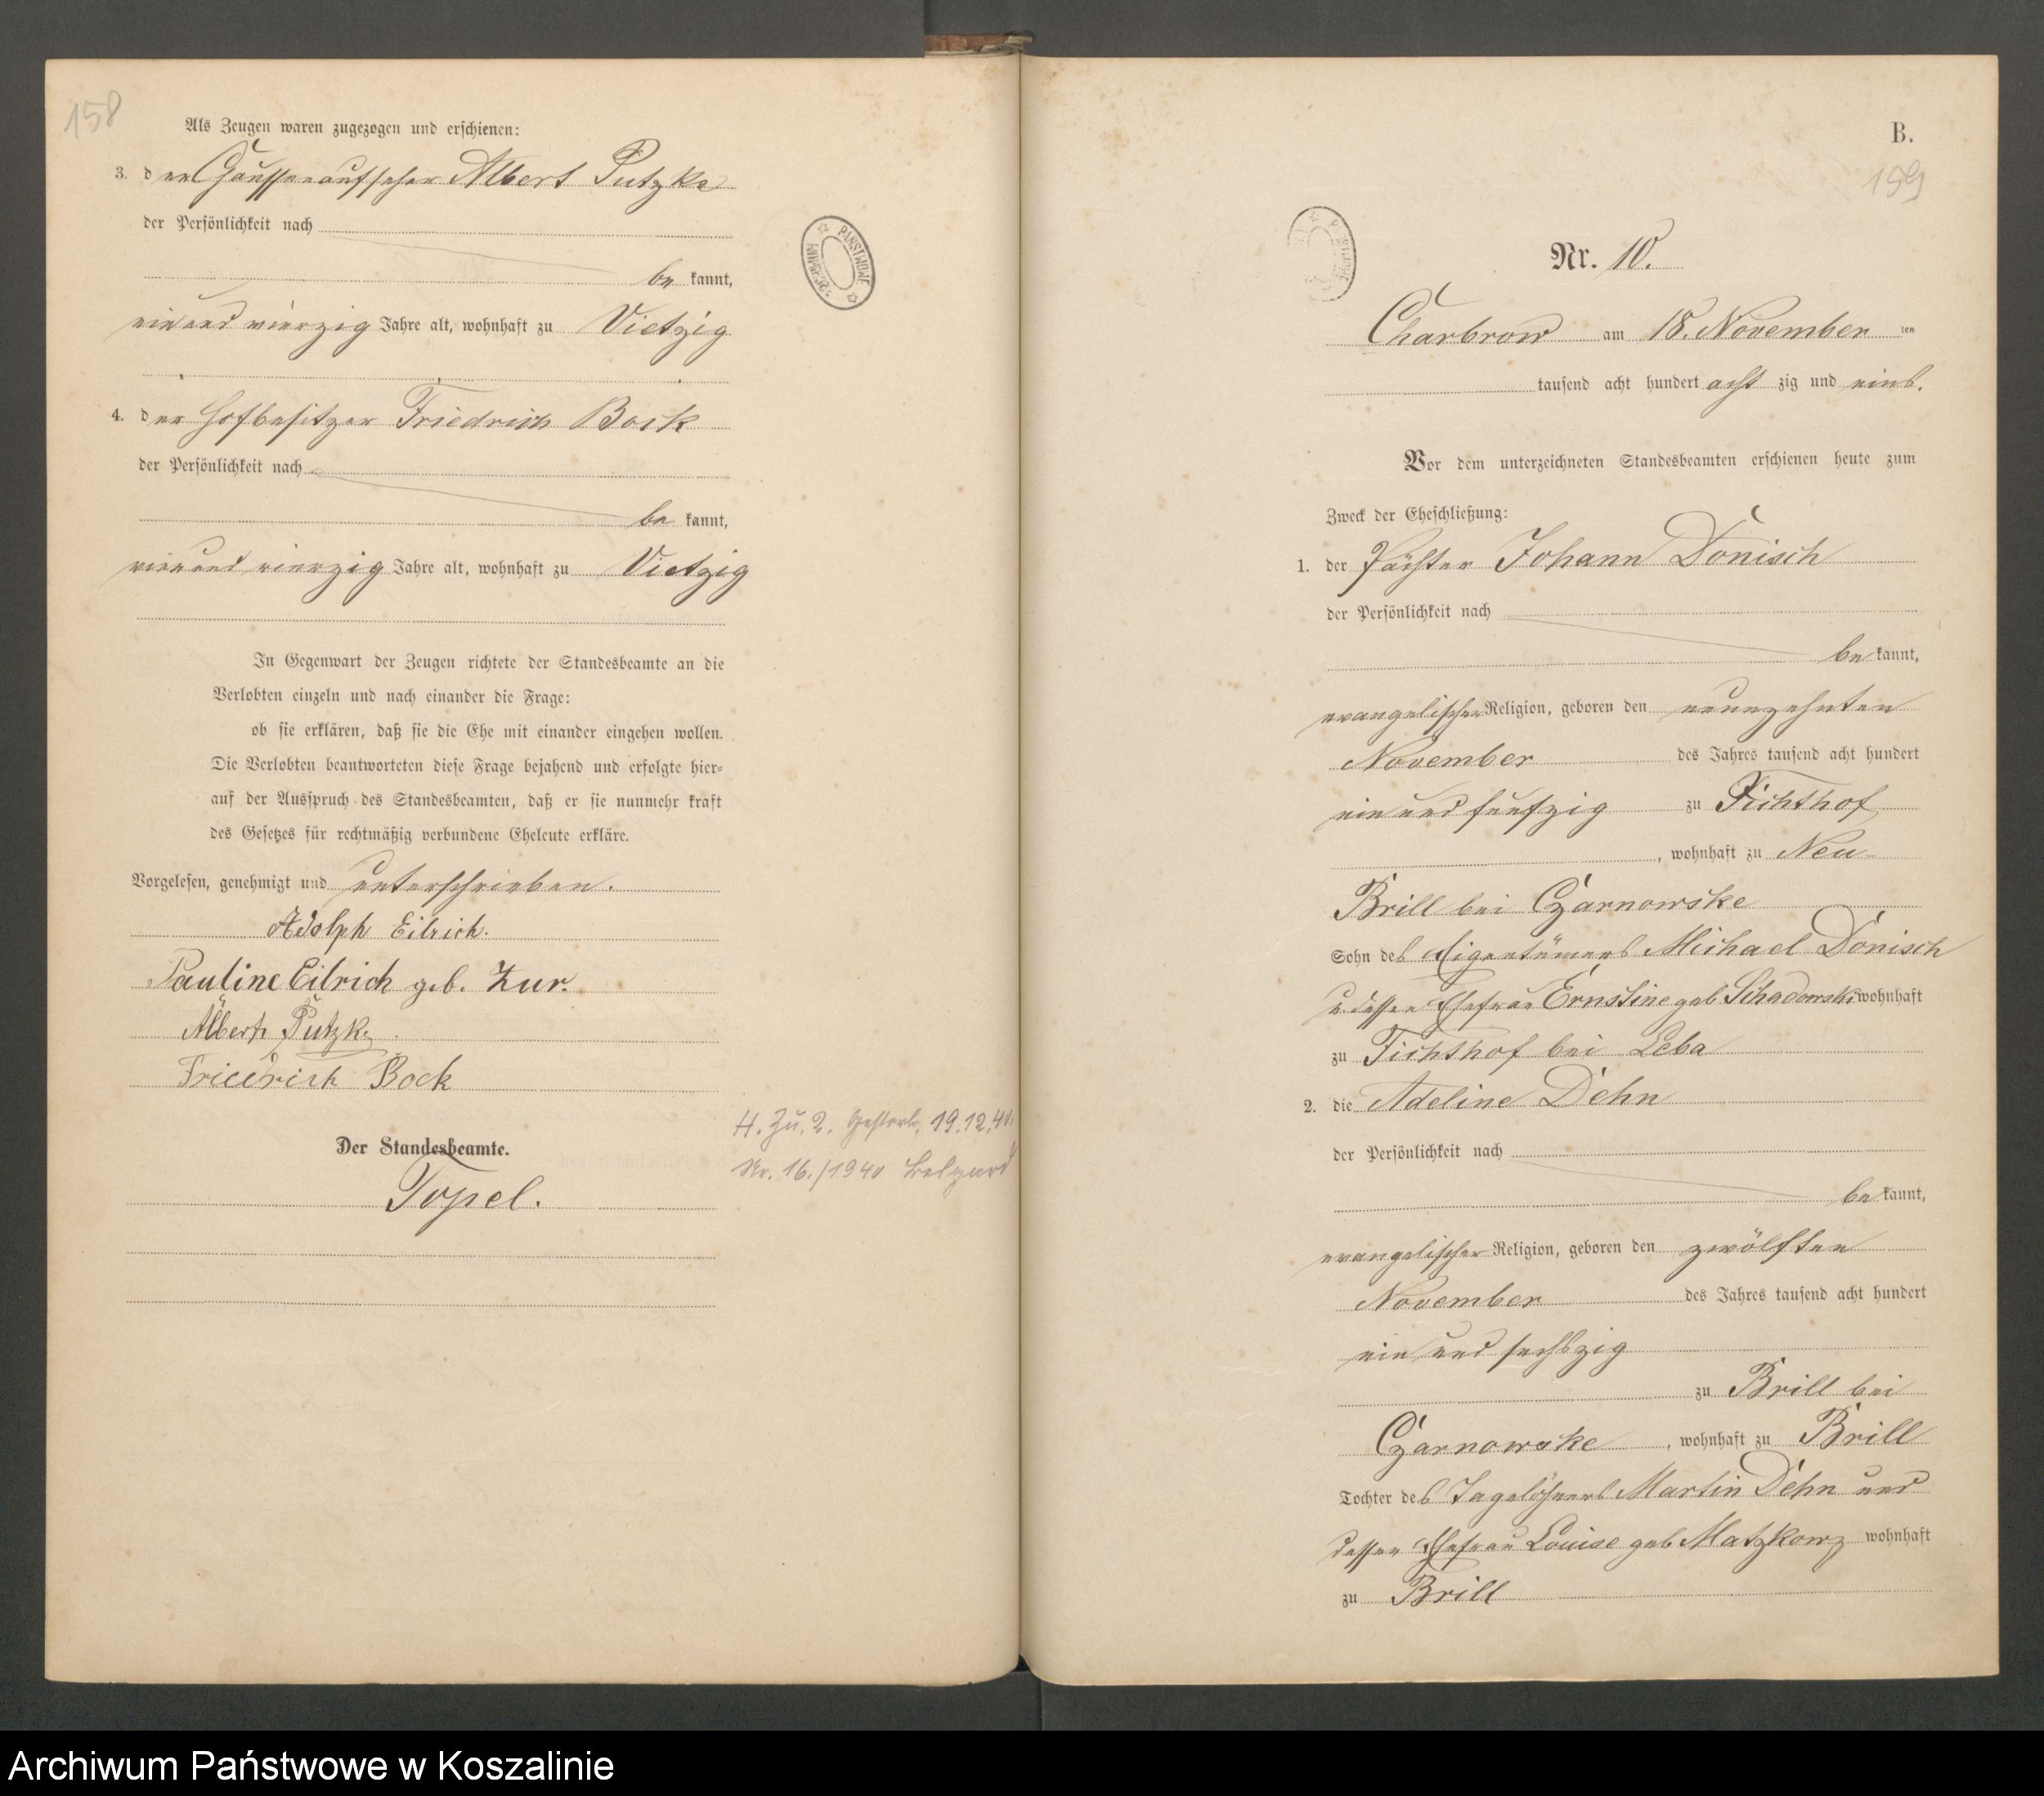 158
Als Zeugen waren zugezogen und erschienen:
3. der Chausseeaufseher Albert Putzke
der Persönlichkeit nach
be kannt,
ein und vierzig Jahre alt, wohnhaft zu Vietzig
4. der Hofbesitzer Friedrich Bock
der Persönlichkeit nach
be kannt,
vier und vierzig Jahre alt, wohnhaft zu Vietzig
In Gegenwart der Zeugen richtete der Standesbeamte an die
Verlobten einzeln und nach einander die Frage:
ob sie erklären, daß sie die Ehe mit einander eingehen wollen.
Die Verlobten beantworteten diese Frage bejahend und erfolgte hier-
auf der Ausspruch des Standesbeamten, daß er sie nunmehr kraft
des Gesetzes für rechtmäßig verbundene Eheleute erkläre.
Vorgelesen, genehmigt und unterschrieben.
Adolph Eilrich.
Pauline Eilrich geb. Zur.
Albert Putzke
Friedrich Bock
H. Zu. 2. Gestorb. 19.12.40.
Nr. 16./1940 Belgard
Der Standesbeamte.
Topel.
PAŃSTWOWE
B.
159
Nr. 10.
Charbrow am 18. November ten
tausend acht hundert acht zig und eins.
Vor dem unterzeichneten Standesbeamten erschienen heute zum
Zweck der Eheschließung:
1. der Pächter Johann Donisch
der Persönlichkeit nach
be kannt,
evangelischer Religion, geboren den neunzehnten
November des Jahres tausend acht hundert
ein und fünfzig zu Fichthof
, wohnhaft zu Neu-
Brill bei Czarnowske
Sohn des Eigentümers Michael Donisch
u. dessen Ehefrau Ernstine geb. Schadowski wohnhaft
zu Fichthof bei Leba
2. die Adeline Dehn
der Persönlichkeit nach
be kannt,
evangelischer Religion, geboren den zwölften
November des Jahres tausend acht hundert
ein und sechszig
zu Brill bei
Czarnowske , wohnhaft zu Brill
Tochter des Tagelöhners Martin Dehn und
dessen Ehefrau Louise geb Matzkowz wohnhaft
zu Brill
Archiwum Państwowe w Koszalinie